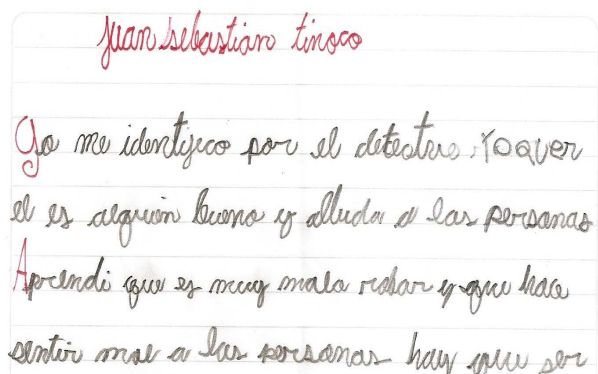 juan sebastian tinoco
Yo me identifico por el detective Yoquer
el es alguien bueno y alluda a las personas
Aprendi que es muy malo robar y que hace
sentir mal a las personas hay que ser